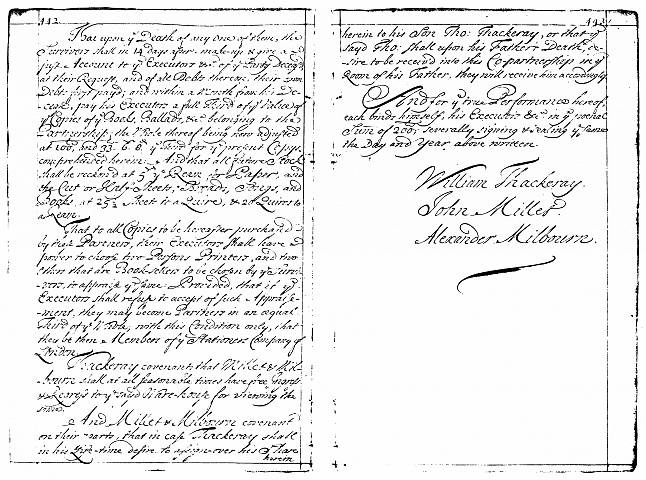 112
That upon yᵉ Death of any one of them, the
Survivors shall in 14 days after make up & give a
just Account to yᵉ Executors &c of yᵉ Party Deceas'd
at their Request, and of all Debts thereon, Their own
Debts first payd; and within a Month from his De-
cease, pay his Executors a full Third of yᵉ Value of
yᵉ Copies of yᵉ Books, Ballads, &c belonging to the
Partnership; the whole thereof being now adjusted
at 100l, and 33. 6. 8 yᵉ Third for yᵉ present Copys,
comprehended herein: And that all future Stock
shall be reckoned at 5s yᵉ Ream for Paper, and
the Cutt or Half-Sheets, Broads, Prigs, and
Books, at 25 Sheets to a Quire, & Quires to
a Ream.
That to all Copies to be hereafter purchased
by these Partners, their Executors shall have
power to choose two Persons Printers, and two
other that are Book-sellers to be chosen by yᵉ Survi-
vors, to appraise yᵉ same: Provided, that if yᵉ
Executors shall refuse to accept of such Appraise-
-ment, they may become Partners in an equal
Third of yᵉ Whole, with this Condition only, that
they be then Members of yᵉ Stationers Company of
London.
Thackeray covenants that Millet & Mil-
bourn shall at all seasonable times have free Ingress
& Regress to yᵉ said Ware-house for Viewing the
same.
And Millet & Milbourn covenant
on their Parts, that in case Thackeray shall
in his Life-time desire to assign over his Share
herein
herein to his Son Tho: Thackeray, or that yᵉ
sayd Tho: shall upon his Father's Death, de-
sire to be received into this Co-partnership in yᵉ
Room of his Father, they will receive him accordingly.
And for yᵉ true Performance hereof,
each binds himself, his Executors &c in yᵉ poenal
Sum of 200l; severally signing & sealing yᵉ same
the Day and Year above written.
William Thackeray.
John Millet.
Alexander Milbourn.